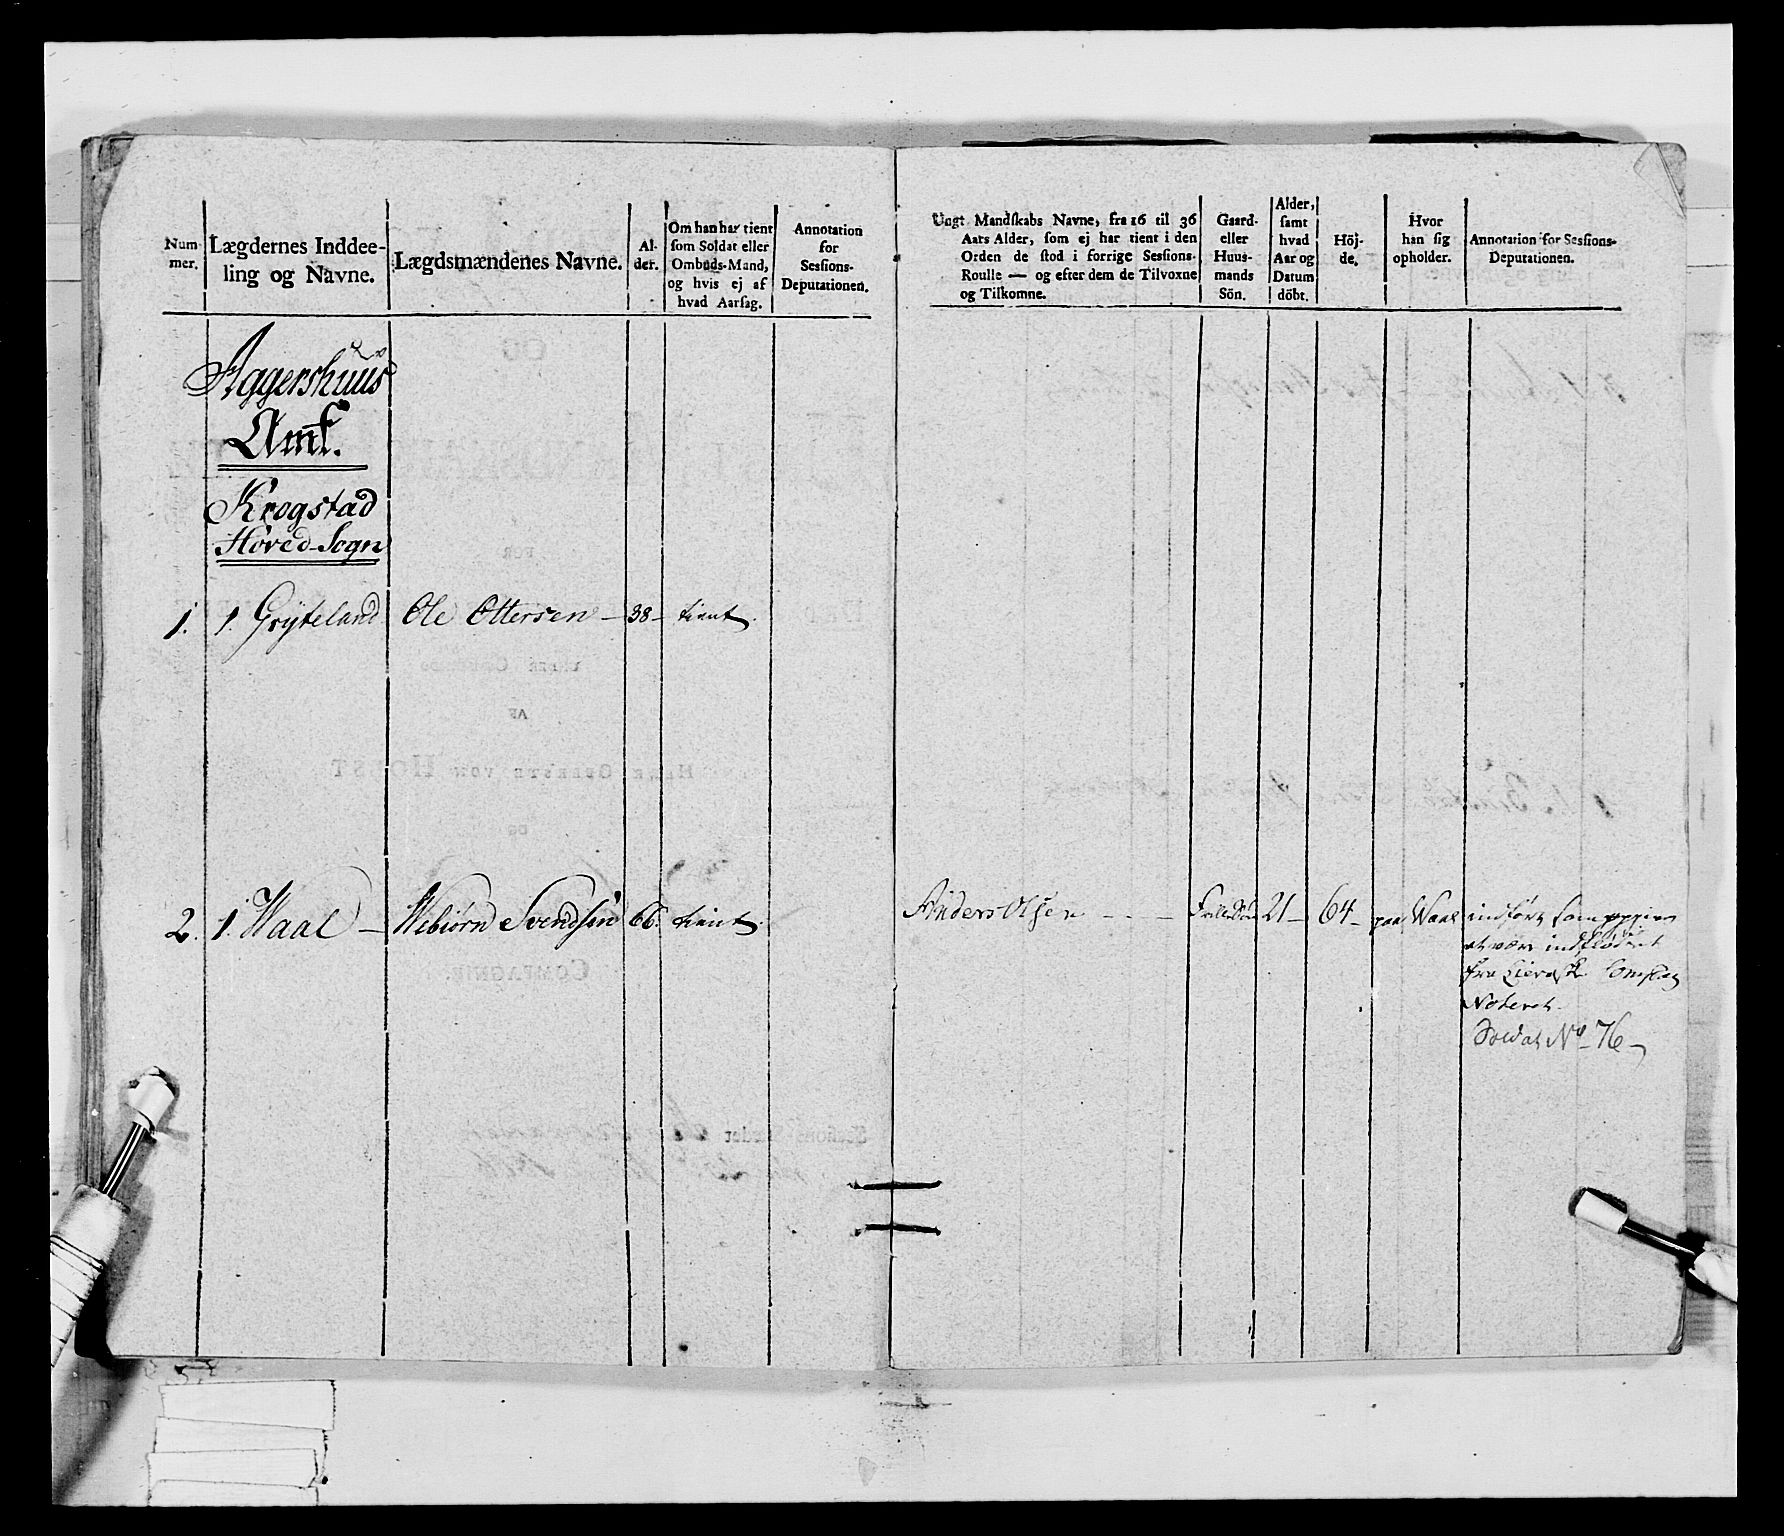 Num-
mer.
Lægdernes Inddee-
ling og Navne.
Lægdsmændenes Navne.
Al-
der.
Om han har tient
som Soldat eller
Ombuds-Mand,
og hvis ej af
hvad Aarsag.
Annotation
for
Sessions-
Deputationen.
Ungt Mandskabs Navne, fra 16 til 36
Aars Alder, som ej har tient i den
Orden de stod i forrige Sessions-
Roulle — og efter dem de Tilvoxne
og Tilkomne.
Gaard-
eller
Huus-
mands
Sön.
Alder,
samt
hvad
Aar og
Datum
döbt.
Höj-
de.
Hvor
han sig
opholder.
Annotation for Sessions-
Deputationen.
Aggershuus
Amt.
Krogstad
Hoved-Sogn
1. 1. Gryteland Ole Ottersen — 38 — tient.
2. 1. Waal — Webiørn Svendsen 66. tient.
Anders Olsen - - - 21 — 64 — paa Waal indført
at være
fra
Noteret.
Soldat No 76 —